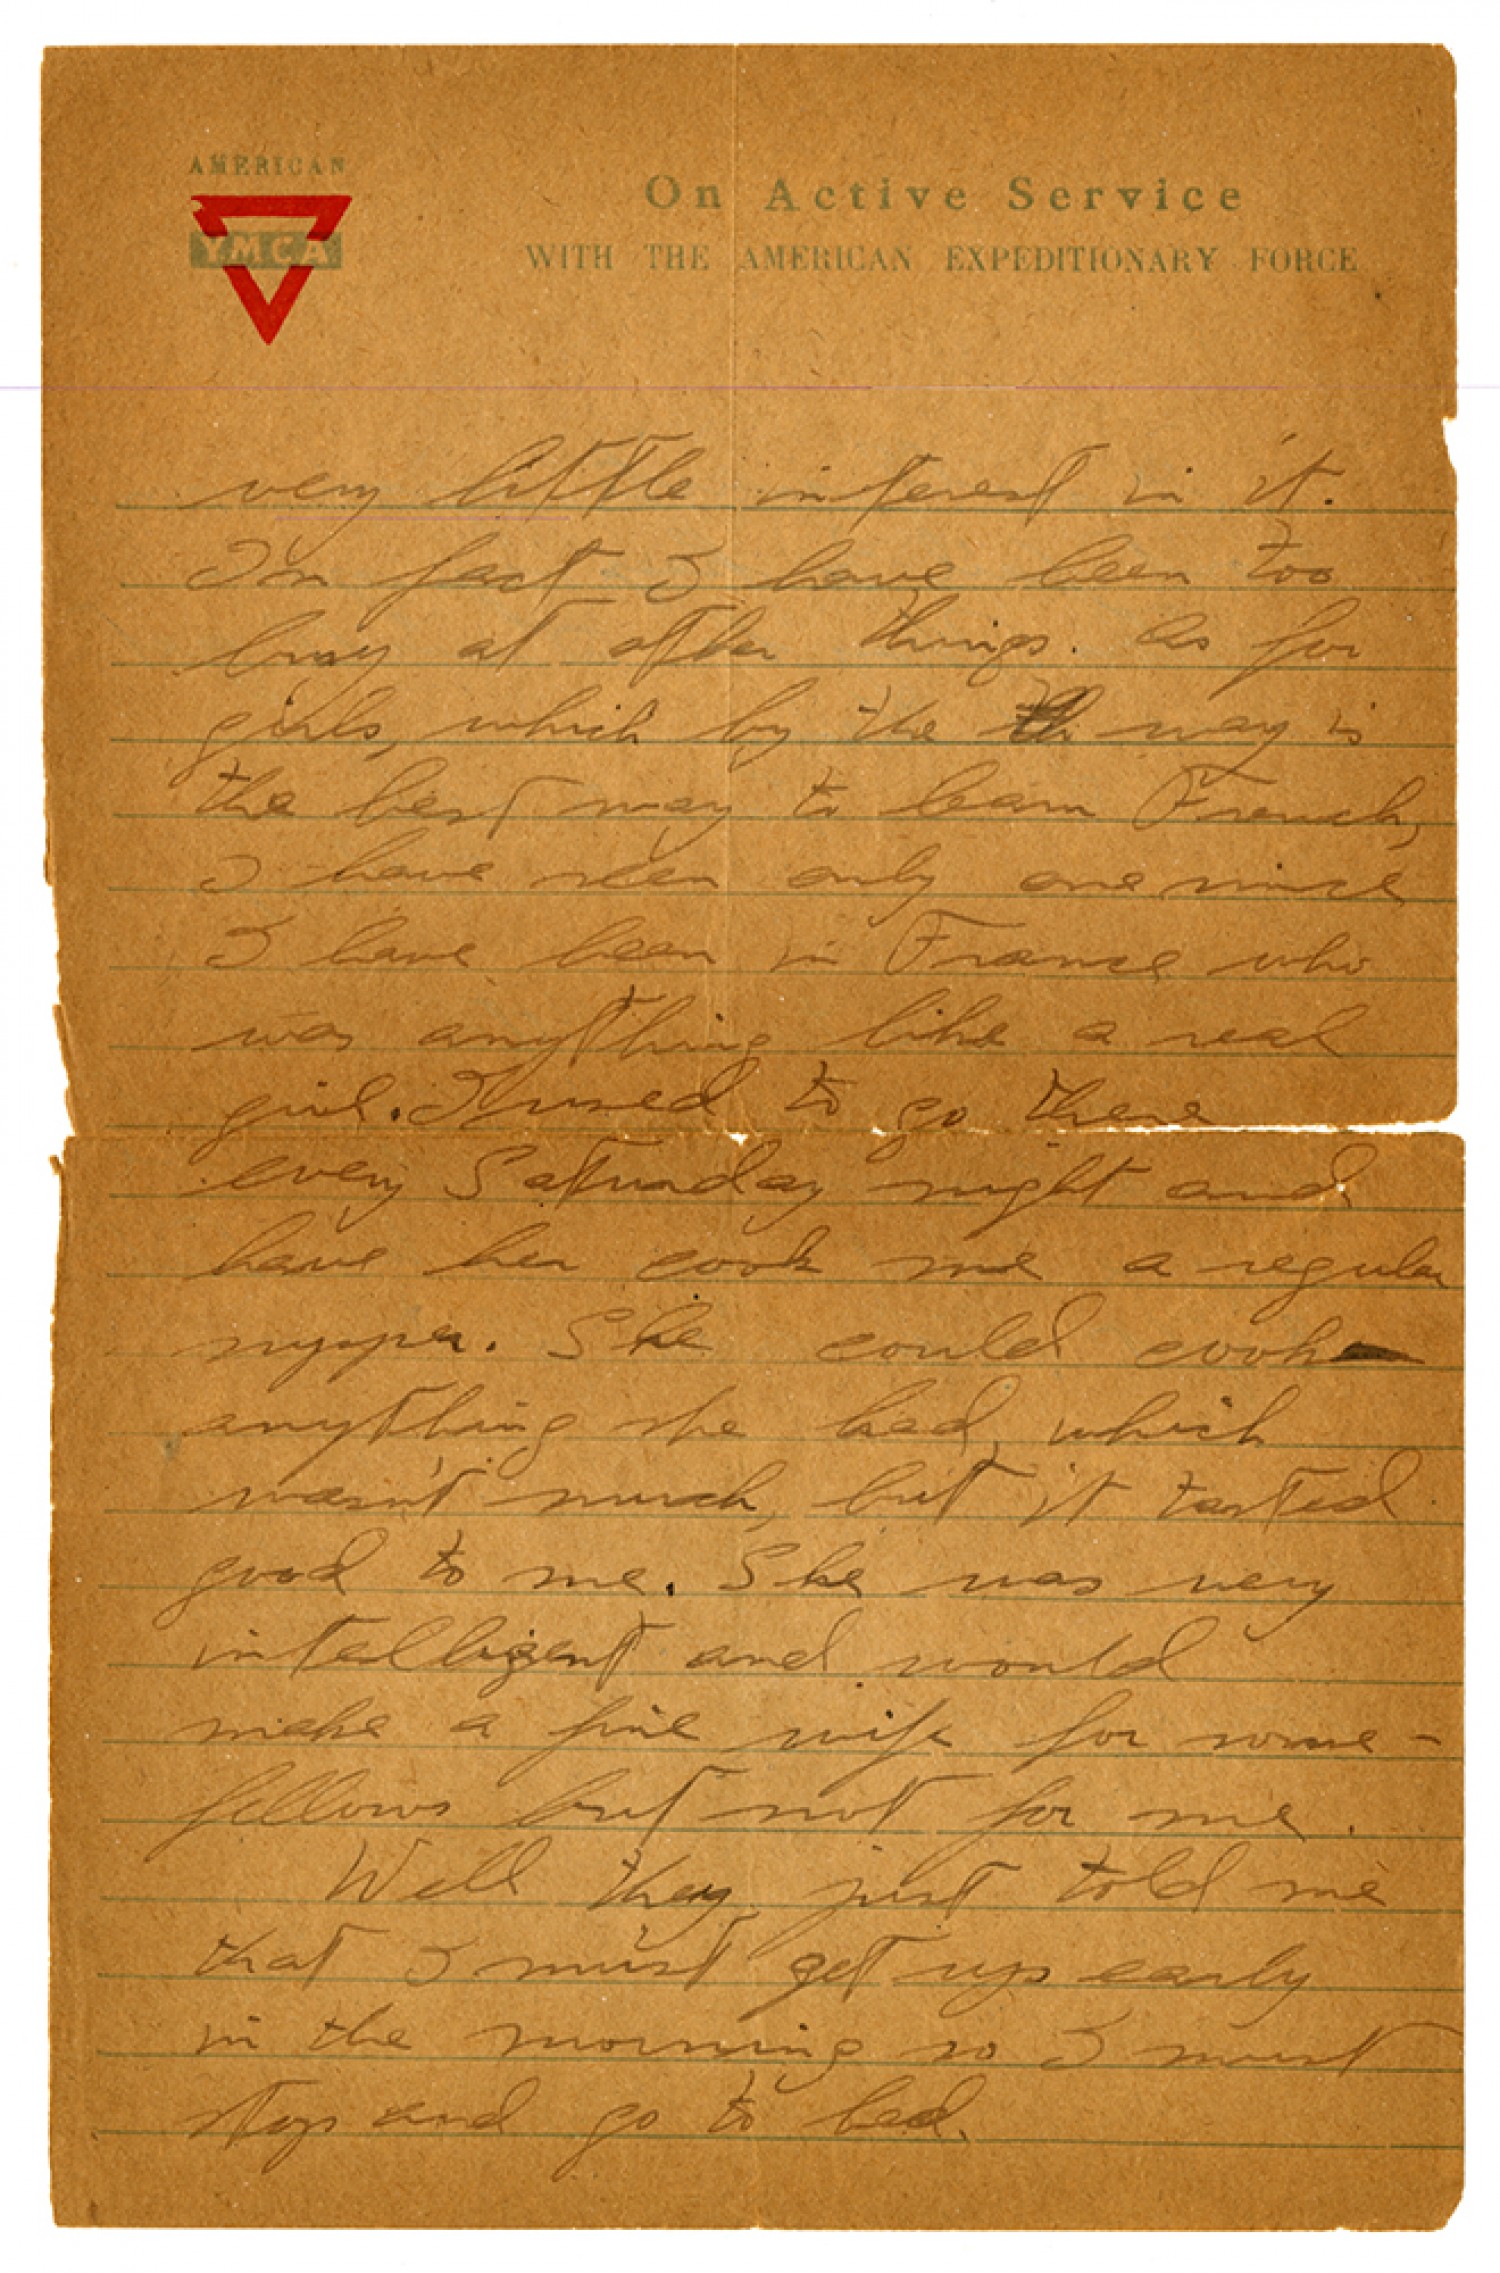 AMERICAN
YMCA
On Active Service
WITH THE AMERICAN EXPEDITIONARY FORCE
very little interest in it.
In fact I have been too
busy at other things. As for
girls, which by the th way is
the best way to learn French,
I have seen only one since
I have been in France who
was anything like a real
girl. I used to go there
every Saturday night and
have her cook me a regular
supper. She could cook
anything she had, which
wasn't much, but it tasted
good to me. She was very
intelligent and would
make a fine wife for some-
fellows but not for me.
Well they just told me
that I must get up early
in the morning so I must
stop and go to bed.